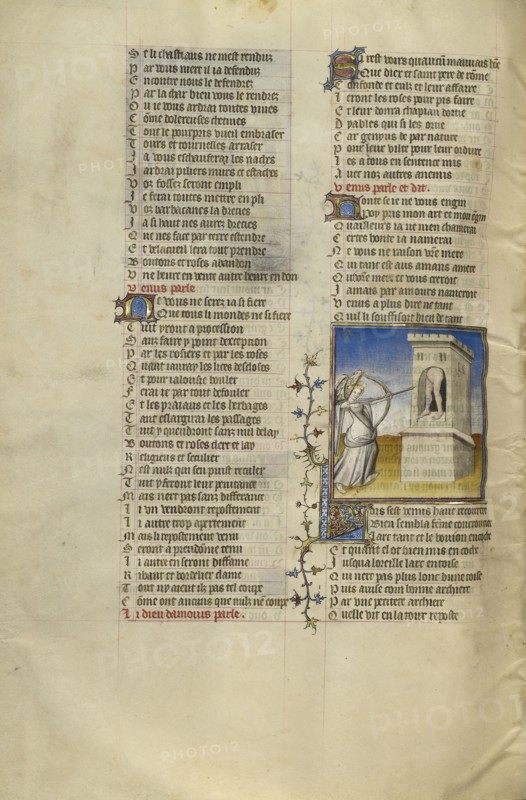 Se li chastiaus ne mest rendus
Par vous mere il ia defendus
Encontre nous le defendez
Par la char dieu vous le rendrez
Ou ie vous ardrai toutes viues
Côme dolereuses chetiues
Tout le pourpris vueil embraser
Tours et tournelles arraser
Ia vous eschauferai les naches
Jardrai piliers murs et estaches
Voz fossez seront empli
Je ferai toutes mettre en pli
Voz barbacanes la drecies
Ja si haut nes aurez drecies
Que nes face par terre estendre
Et belacueil lera tout prendre
Boutons et roses a bandon
Vne heure en vente autre heure en don
Venus parle
Ne vous ne serez ia si fiere
Que tous li mondes ne si fiere
Tuit yront a procession
Sanz faire y point dexception
Par les rosiers et par les roses
Quant iauray les lices descloses
Et pour ialousie bouler
Ferai ie par tout defouler
Et les praiaus et les herbages
Tant eslargirai les passages
Tuit y quendront sanz nul delay
Boutons et roses clerc et lay
Religieus et seculer
Nest nulz qui sen puist reculer
Tuit y feront leur penitance
Mais nert pas sanz difference
Li un vendront repostement
Li autre trop apertement
Mais li repostement venu
Seront a preudôme tenu
Li autre en seront diffame
Ribaut et bordelier clame
Tout ny aient ilz pas tel coupe
Côme ont aucuns que nulz ne coupe
Li dieu damours parle.
Si rest voirs quaucun mauuais hôe
Que diex et saint pere de rôme
Confonde et eulz et leur affaire
Leront les roses pour pis faire
Et leur donra chapiau dortie
Dyables qui si les ortie
Car genyus de par nature
Pour leur vilte pour leur ordure
Les a tous en sentence mis
Auec noz autres anemis
Venus parle et dit.
Honte se ie ne vous engin
Poy pris mon art et mon engin
Quailleurs ia ne men clamerai
Certes honte ia namerai
Ne vous ne raison vre mere
Qui tant est aus amans amere
Qui vre mere et vous croiroit
Jamais par amours nameroit
Venus a plus dire ne tant
Quil li souffisoit bien de tant
Lors sest venus haut recourcie
Bien sembla feme courroucie
Larc tant et le boujon encoche
Et quant el ot bien mis en coche
Jusqua loreille larc entoise
Qui nert pas plus lonc dune toise
Puis auise com bonne archiere
Par vne petitete archiere
Quelle vit en la tour reposte
PHOTO12